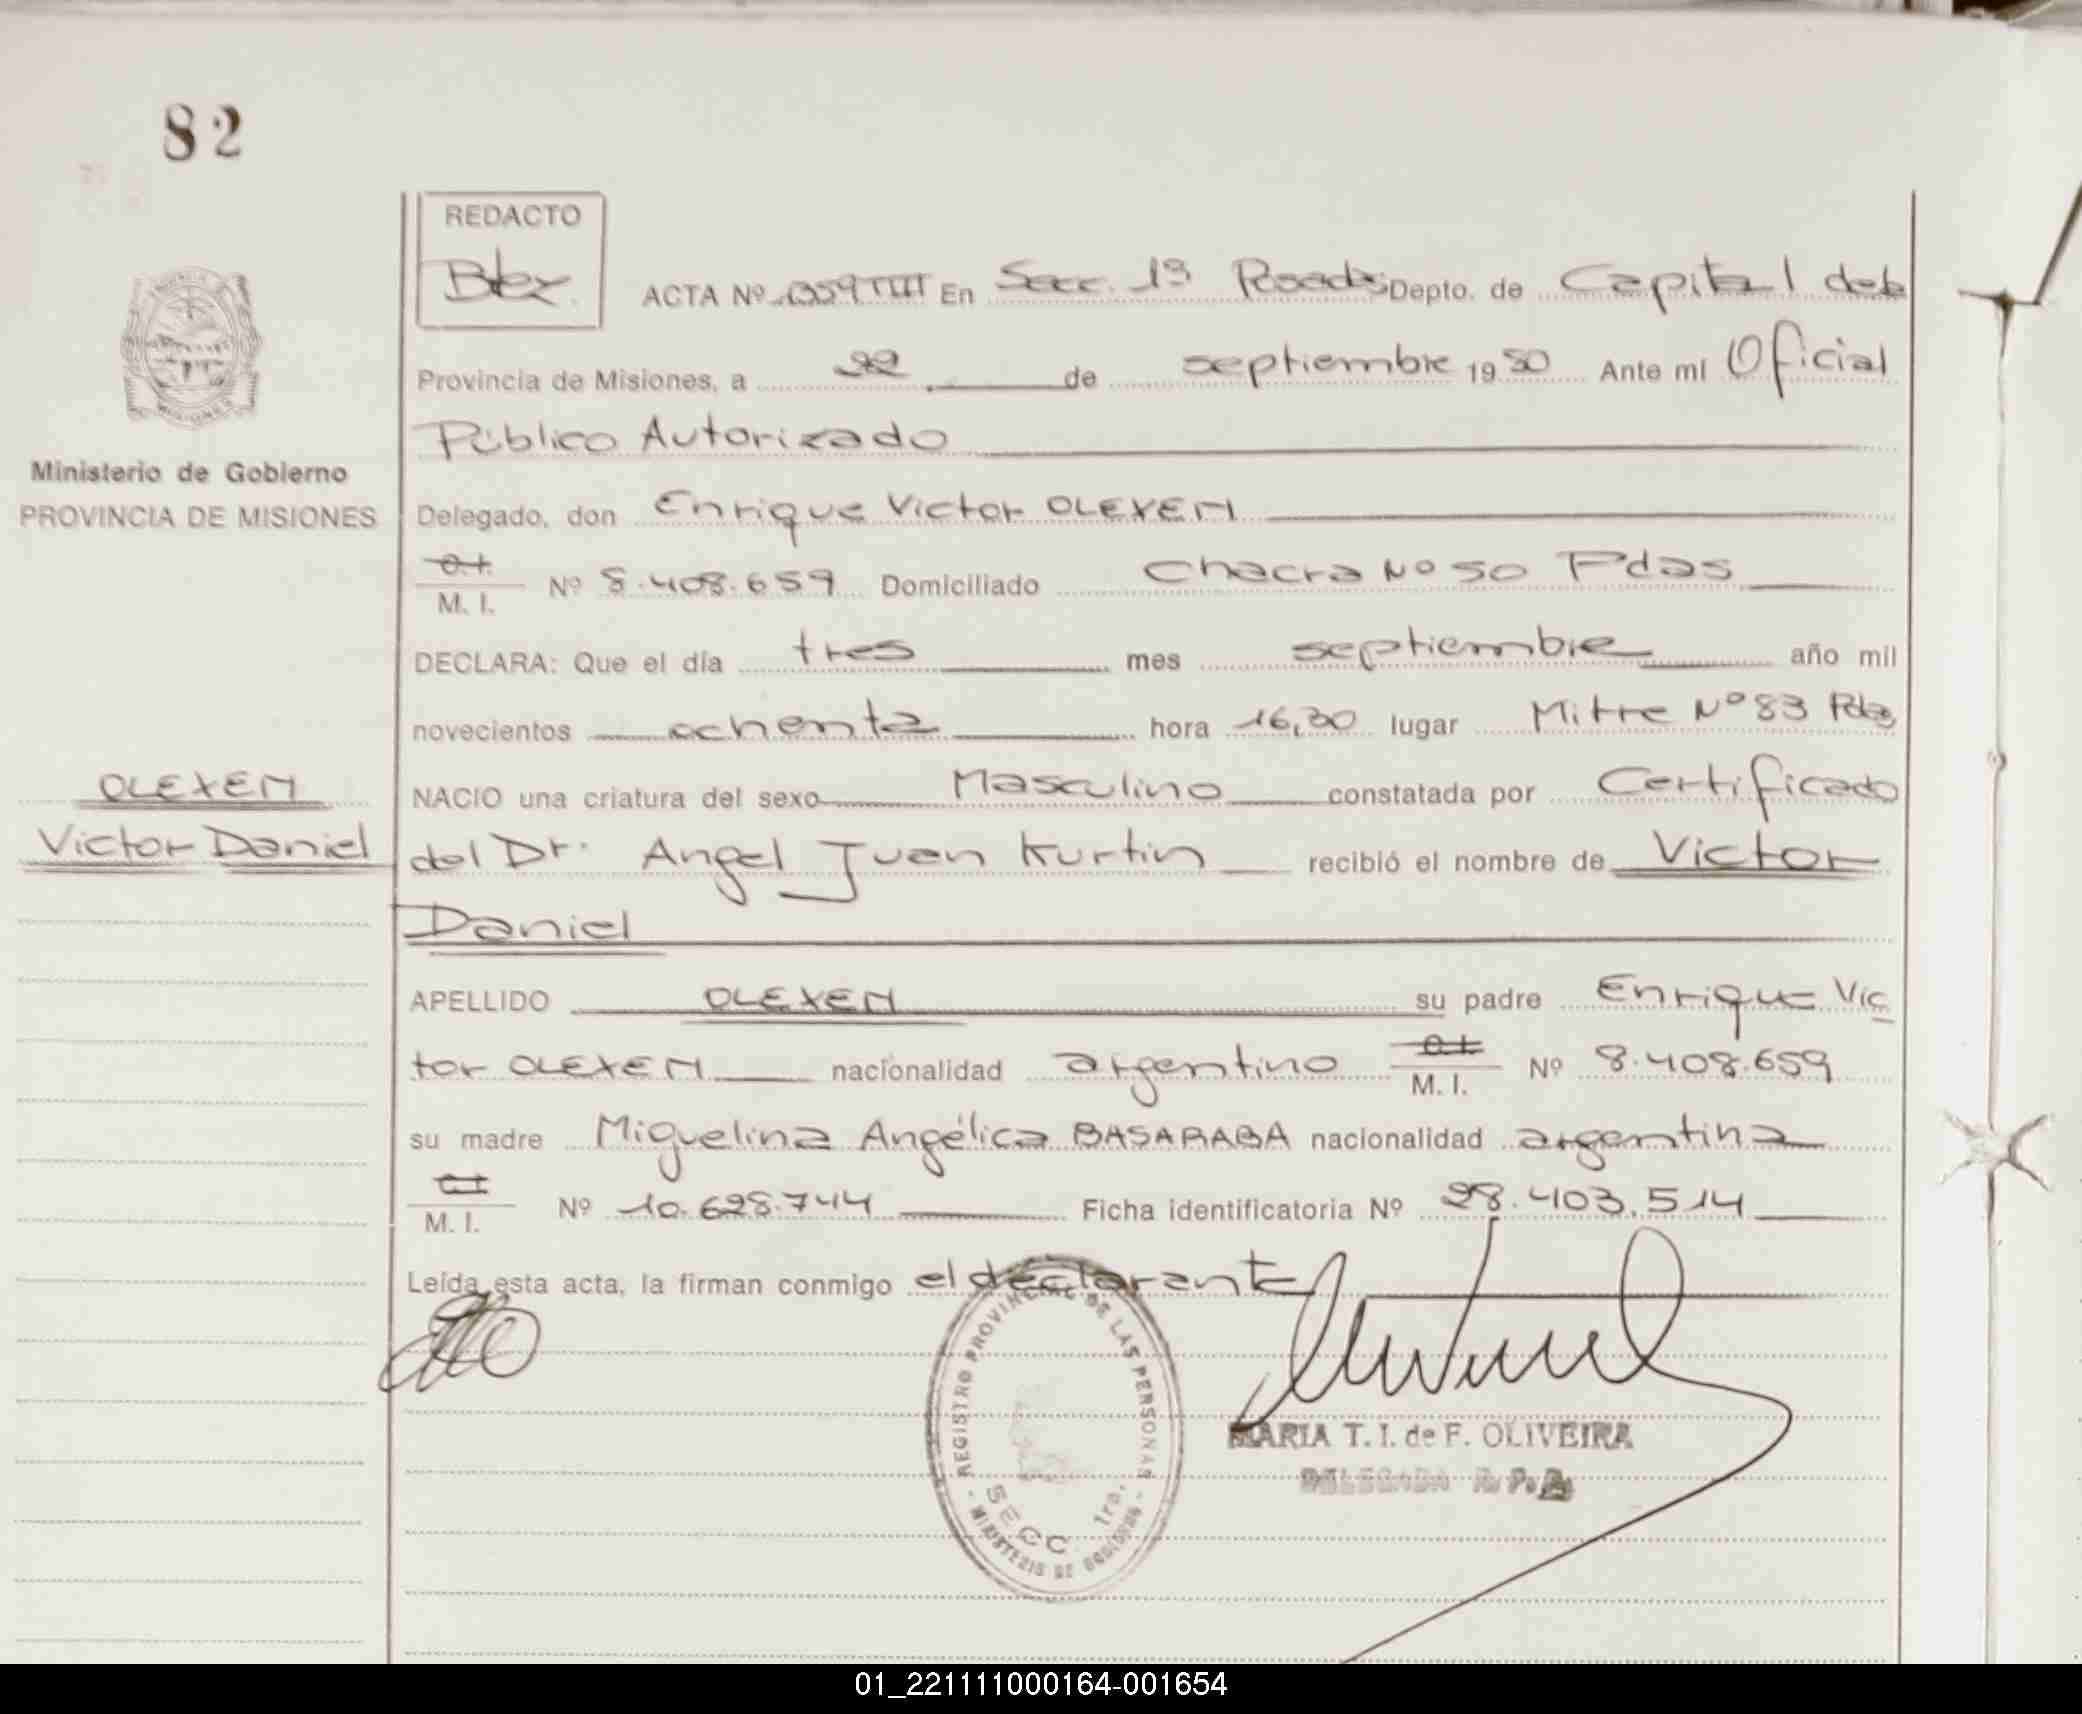 82
REDACTO
ACTA Nº 1359 TIII En Secc. 1ª Posadas Depto. de Capital de la
Provincia de Misiones, a 22 de septiembre 1980 Ante mí Oficial
Público Autorizado
Ministerio de Gobierno
PROVINCIA DE MISIONES
Delegado, don Enrique Victor OLEXEN
C.I.
M. I. Nº 8.408.659 Domiciliado Chacra Nº 50 Pdas
DECLARA: Que el día tres mes septiembre año mil
novecientos ochenta hora 16,30 lugar Mitre Nº 83 Pdas
OLEXEN
Victor Daniel
NACIO una criatura del sexo Masculino constatada por Certificado
del Dr. Angel Juan Kurtin recibió el nombre de Victor
Daniel
APELLIDO OLEXEN su padre Enrique Vic
tor OLEXEN nacionalidad argentino C.I.
M. I. Nº 8.408.659
su madre Miguelina Angélica BASARABA nacionalidad argentina
C.I.
M. I. Nº 10.628.744 Ficha identificatoria Nº 28.403.514
Leída esta acta, la firman conmigo el declarante
REGISTRO PROVINCIAL DE LAS PERSONAS
SECC. 1ra.
- MINISTERIO DE GOBIERNO -
MARIA T. I. de F. OLIVEIRA
DELEGADA R. P. P.
01_221111000164-001654